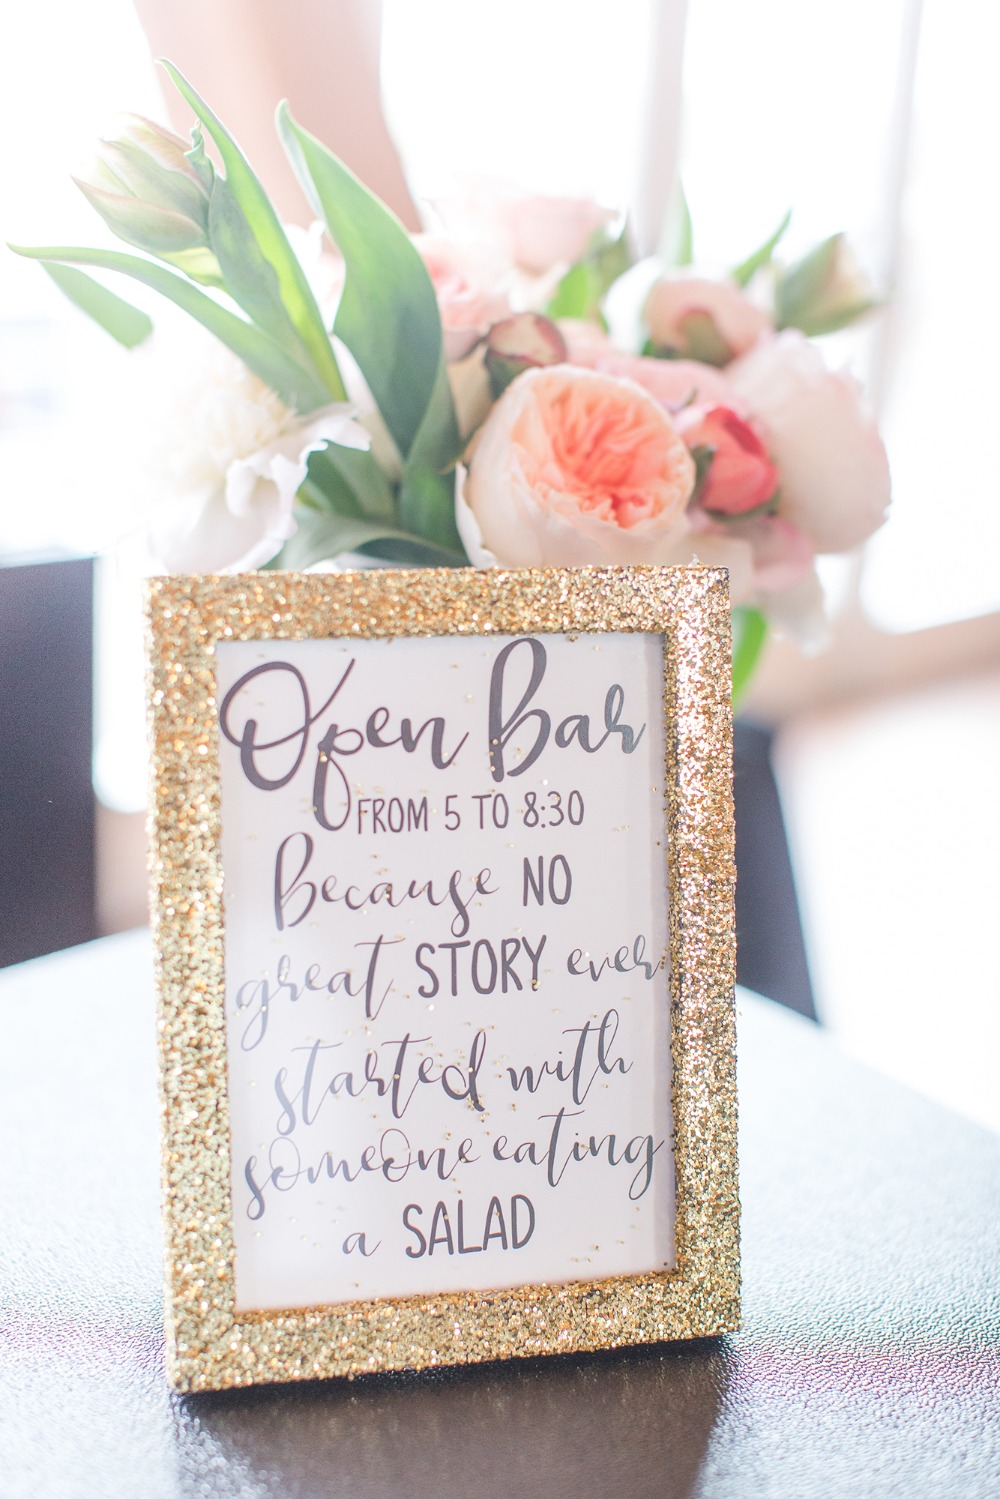 Open Bar
FROM 5 TO 8:30
Because NO
great STORY ever
started with
someone eating
a SALAD